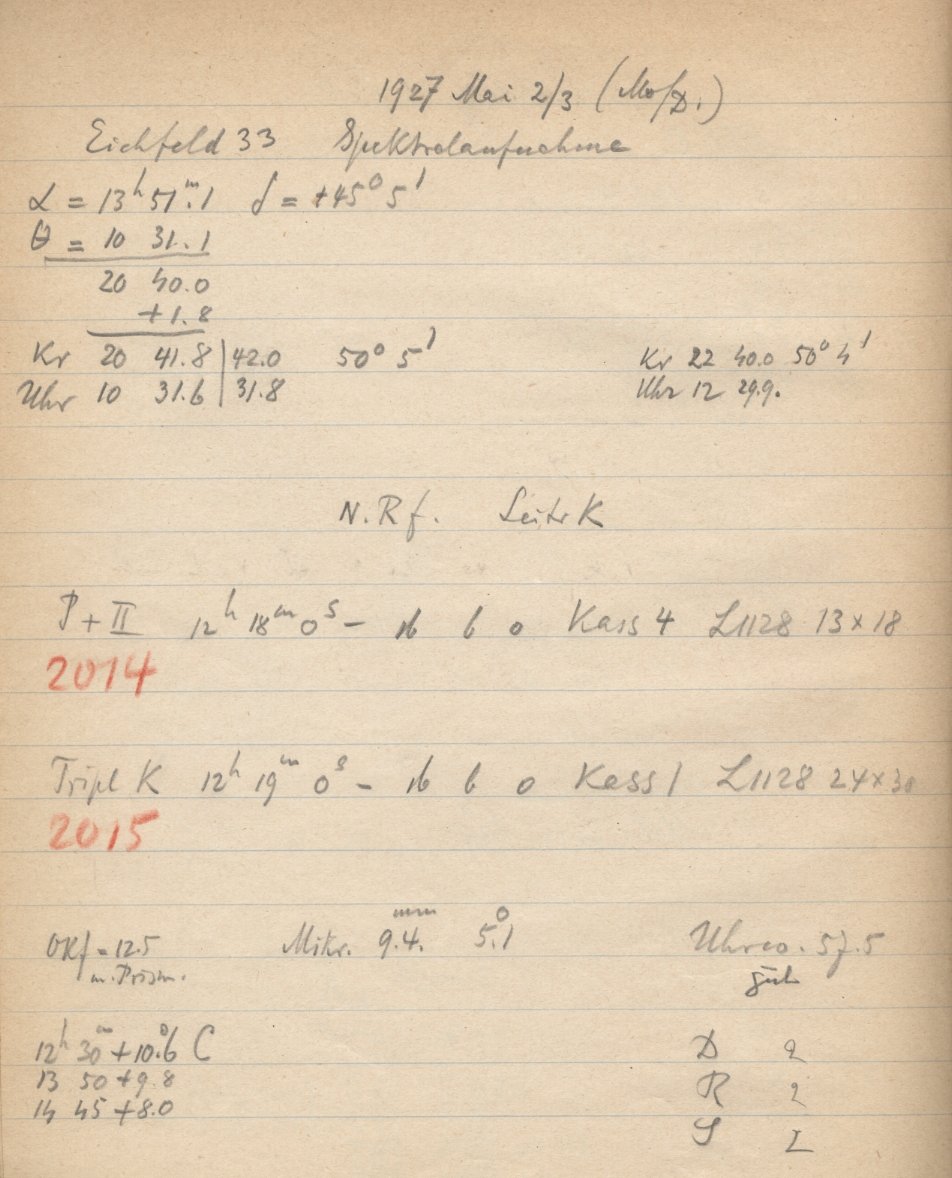 1927 Mai 2/3 (Mo/D.)
Eichfeld 33 Spektralaufnahme
α = 13ʰ 51ᵐ.1 δ = +45° 5'
θ = 10 31.1
20 40.0
+1.8
Kr 20 41.8 | 42.0 50° 5' Kr 22 40.0 50° 4'
Uhr 10 31.6 | 31.8 Uhr 12 29.9.
N.Rf. Leitr K
P + II 12ʰ 18ᵐ 0ˢ – 16 6 0 Kass 4 L1128 13×18
2014
Tripl K 12ʰ 19ᵐ 0ˢ – 16 6 0 Kass 1 L1128 24×30
2015
OKf = 12.5 Mikr. 9.4. mm 5.1° Uhrco. 57.5
m. Prism. gut
12ʰ 30ᵐ +10°.6 C D 2
13 50 +9.8 R 2
14 45 +8.0 S